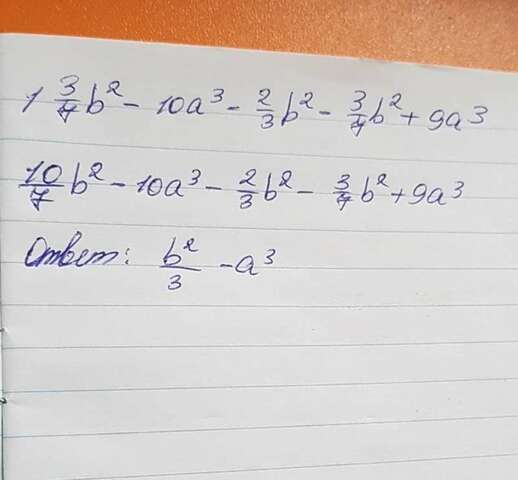 1 3/7 b² - 10a³ - 2/3 b² - 3/7 b² + 9a³
10/7 b² - 10a³ - 2/3 b² - 3/7 b² + 9a³
Ответ: b²/3 - a³